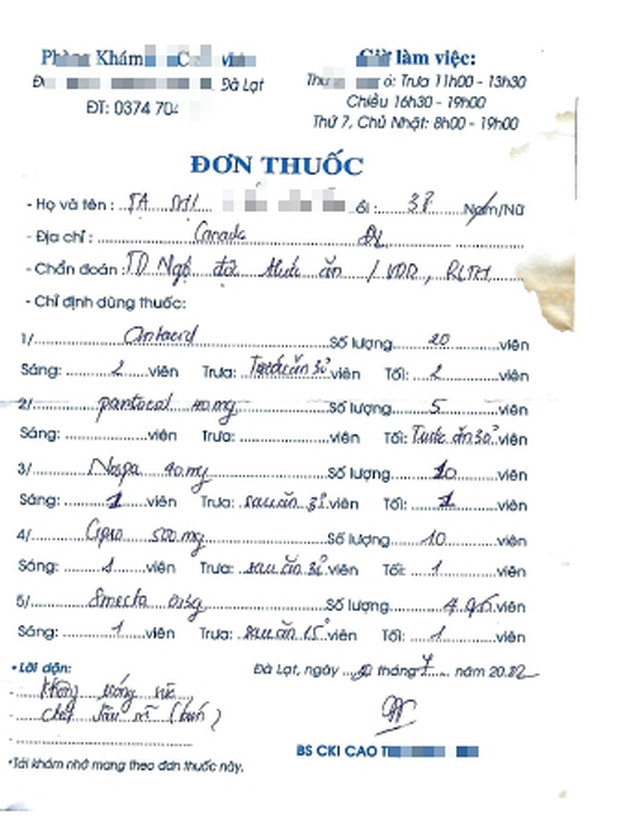 Phòng Khám
Giờ làm việc:
Đà Lạt
ó: Trưa 11h00 - 13h30
ĐT: 0374 704
Chiều 16h30 - 19h00
Thứ 7, Chủ Nhật: 8h00 - 19h00
ĐƠN THUỐC
- Họ và tên : TA ổi : 38 Nam/Nữ
- Địa chỉ : Canada ĐL
- Chẩn đoán : TD Ngộ độc thức ăn / VDD, RLTH
- Chỉ định dùng thuốc:
1/ Antacid Số lượng 20 viên
Sáng: 2 viên Trưa: Trước ăn 30' viên Tối: 2 viên
2/ pantocal 40 mg Số lượng 5 viên
Sáng: viên Trưa: viên Tối: Trước ăn 30' viên
3/ Nospa 40 mg Số lượng 10 viên
Sáng: 1 viên Trưa: sau ăn 30' viên Tối: 1 viên
4/ Cipro 500 mg Số lượng 10 viên
Sáng: 1 viên Trưa: sau ăn 30' viên Tối: 1 viên
5/ Smecta Số lượng viên
Sáng: 1 viên Trưa: sau ăn 15' viên Tối: 1 viên
• Lời dặn:
Đà Lạt, ngày tháng 7 năm 2022
- không uống sữa
-
BS CKI CAO T
*Tái khám nhớ mang theo đơn thuốc này.